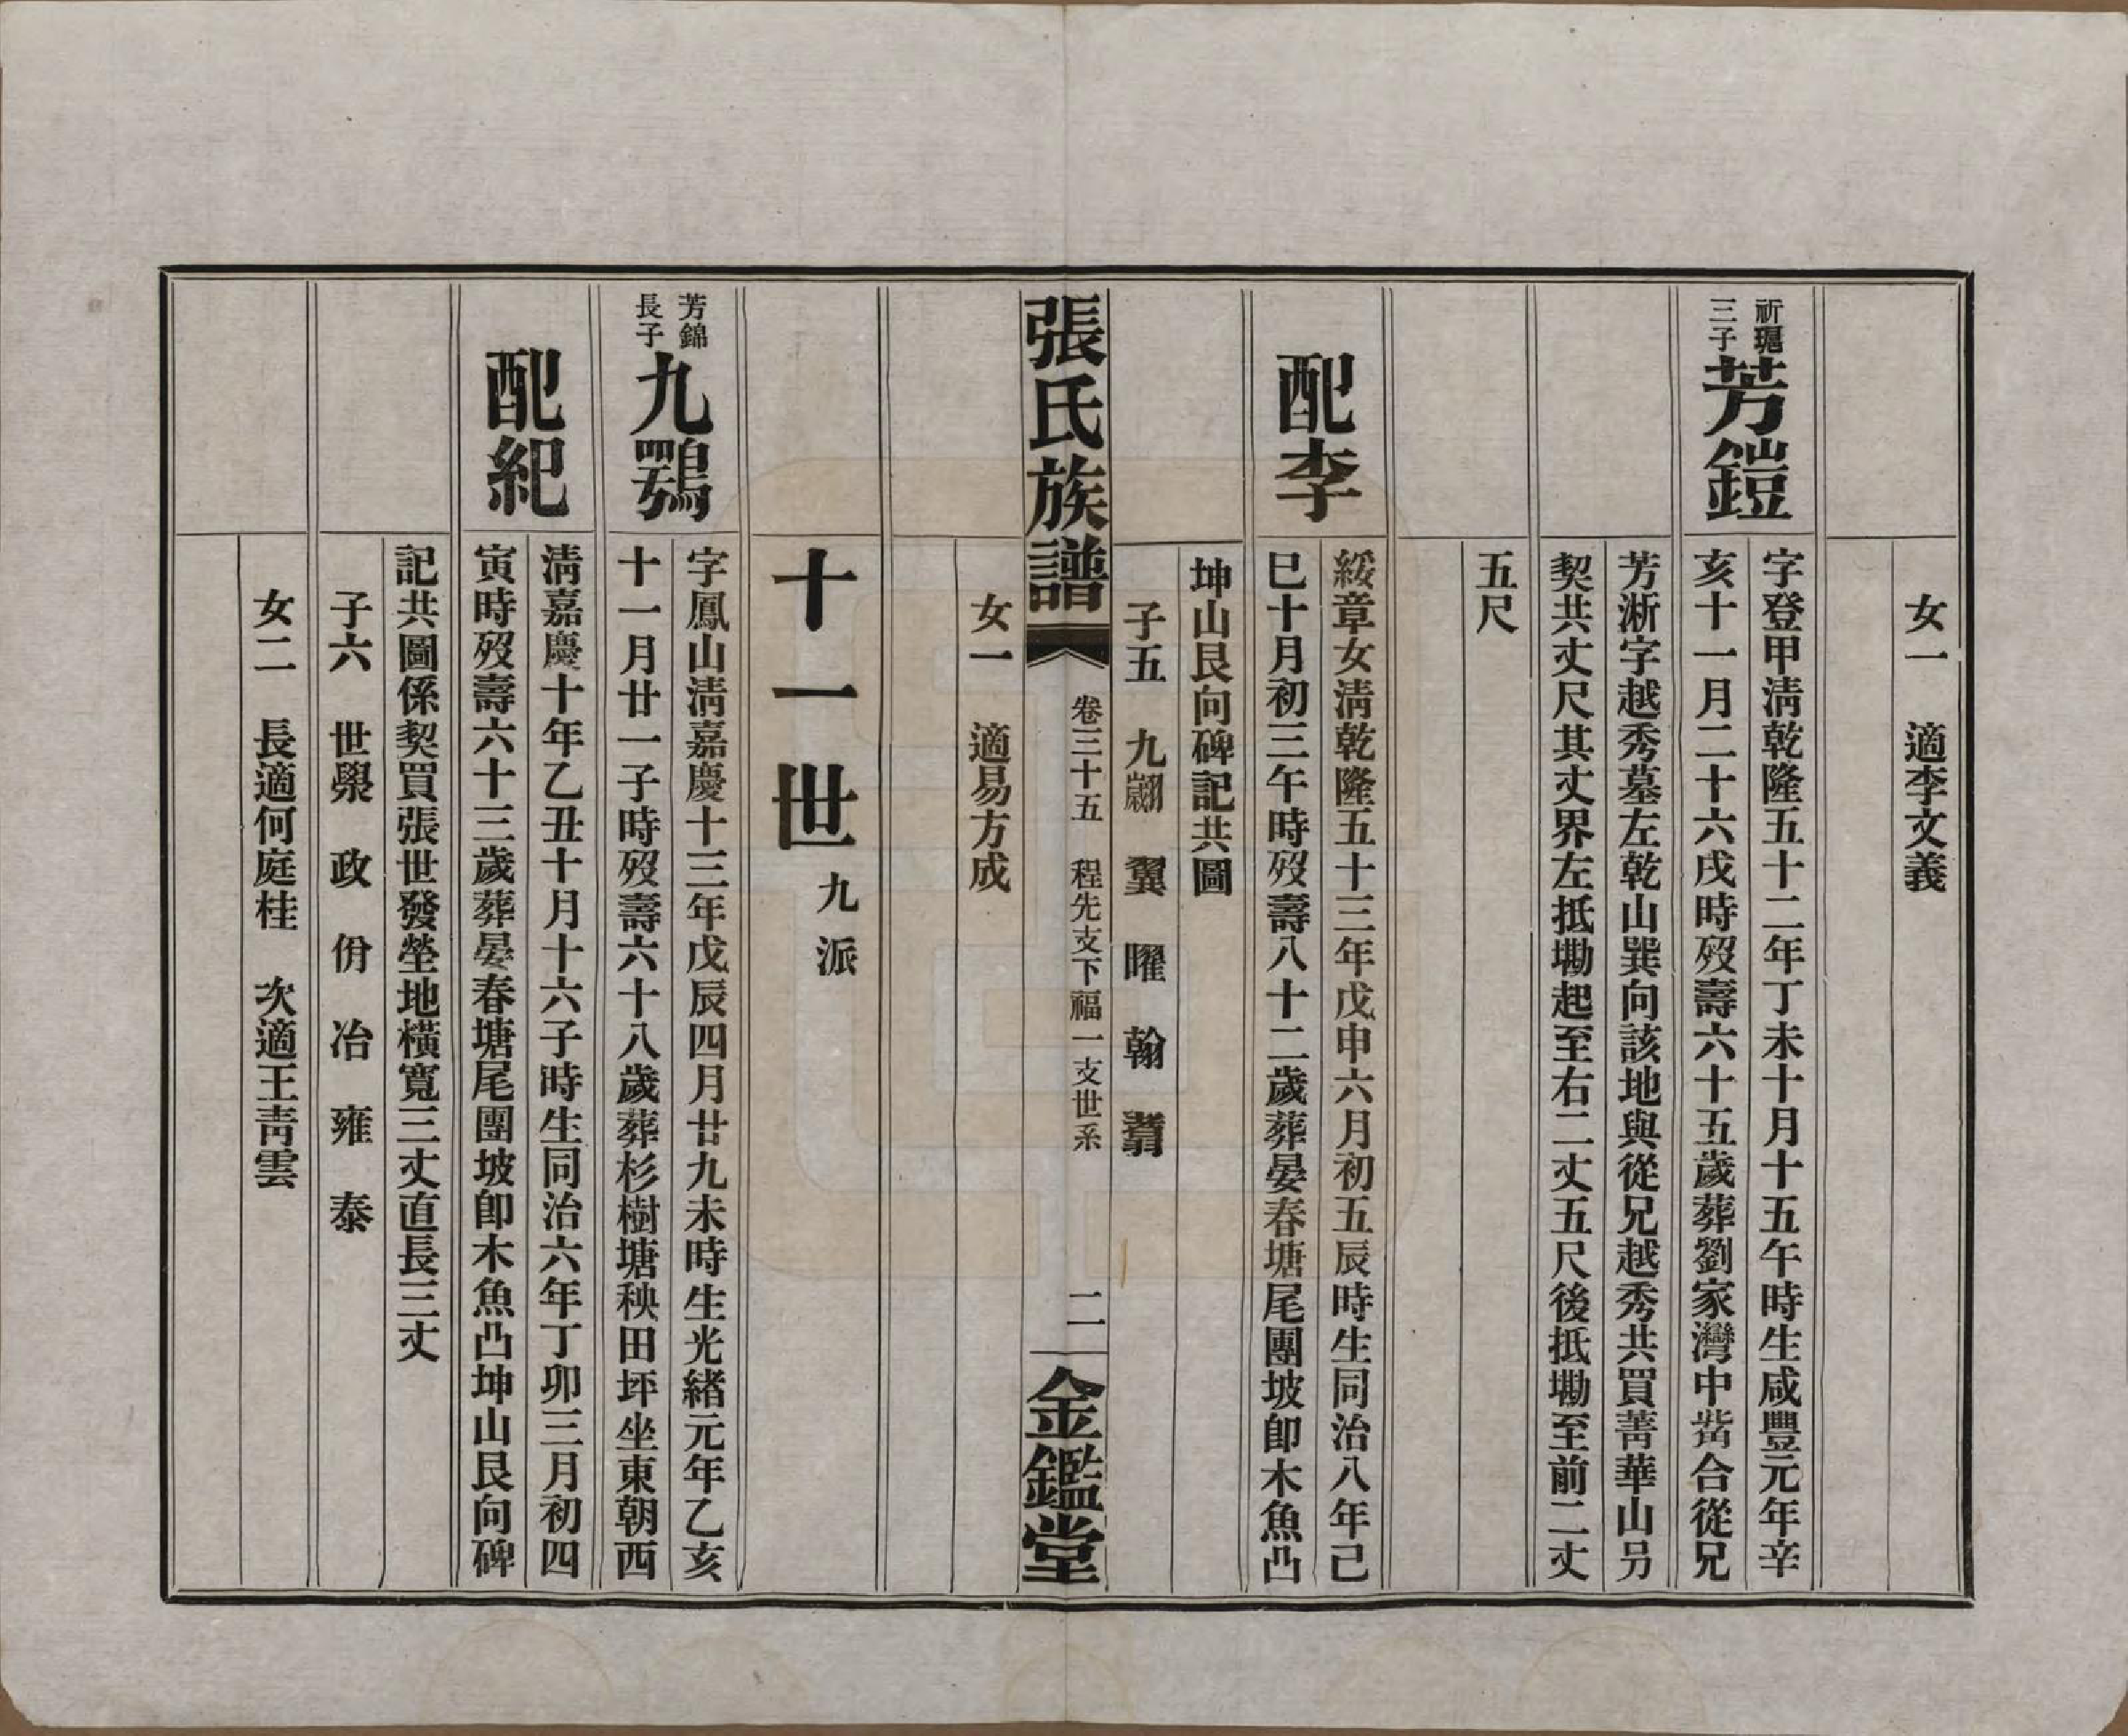 女一　適李文義
祈琨
三子
芳鎧
字登甲淸乾隆五十二年丁未十月十五午時生咸豐元年辛
亥十一月二十六戌時歿壽六十五歲葬劉家灣中嵴合從兄
芳淅字越秀墓左乾山巽向該地與從兄越秀共買菁華山另
契共丈尺其丈界左抵墈起至右二丈五尺後抵墈至前二丈
五尺
配李
綏章女淸乾隆五十三年戊申六月初五辰時生同治八年己
巳十月初三午時歿壽八十二歲葬晏春塘尾團坡卽木魚凸
坤山艮向碑記共圖
子五　九翽　翼　曜　翰　翥
張氏族譜　卷三十五　程先支下福一支世系　二　金鑑堂
女一　適易方成
十一世　九派
芳錦
長子
九鶚
字鳳山淸嘉慶十三年戊辰四月廿九未時生光緖元年乙亥
十一月廿一子時歿壽六十八歲葬杉樹塘秧田坪坐東朝西
配紀
淸嘉慶十年乙丑十月十六子時生同治六年丁卯三月初四
寅時歿壽六十三歲葬晏春塘尾團坡卽木魚凸坤山艮向碑
記共圖係契買張世發塋地橫寬三丈直長三丈
子六　世爂　政　佾　治　雍　泰
女二　長適何庭桂　次適王靑雲